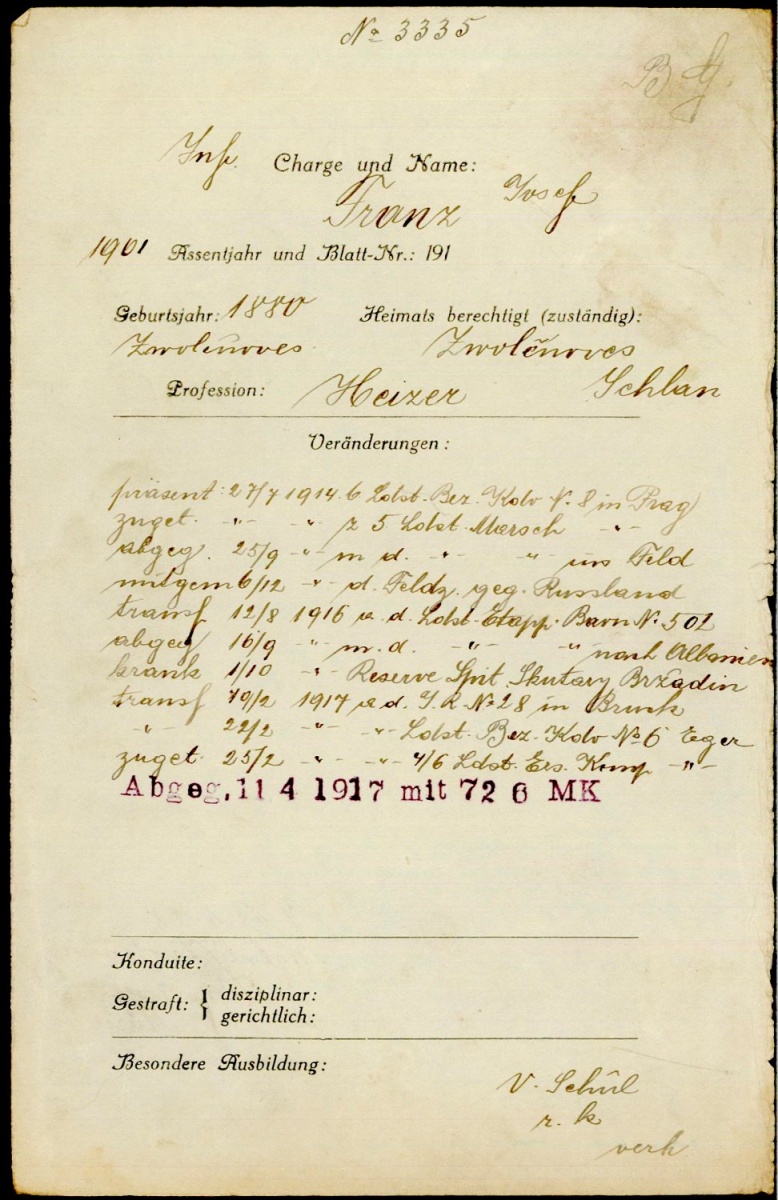 Nº 3335
B G.
Inf. Charge und Name:
Franz Josef
1901 Assentjahr und Blatt-Nr.: 191
Geburtsjahr: 1880 Heimats berechtigt (zuständig):
Zwolenoves Zwolěnoves
Profession: Heizer Schlan
Veränderungen:
präsent: 27/7 1914 b Ldst. Bez. Kdo N. 8 in Prag
zuget. -"- -"- z 5 Ldst. Marsch -"-
abgeg. 25/9 -"- m d. -"- -"- ins Feld
mitgem 6/12 -"- d. Feldz. geg. Russland
transf 12/8 1916 z. d. Ldst. Etapp. Baon N. 502
abgeg 16/9 -"- m. d. -"- -"- nach Albanien
krank 1/10 -"- Reserve Spit. Skutary Brzadin
transf 19/2 1917 z d. I. R. Nº 28 in Bruck
-"- 22/2 -"- -"- Ldst. Bez. Kdo Nº 6 Eger
zuget. 25/2 -"- -"- 4/6 Ldst. Ers. Komp -"-
Abgeg. 11 4 1917 mit 72 6 MK
Konduite:
Gestraft: { disziplinar:
gerichtlich:
Besondere Ausbildung:
V. Schul
r. k
verh